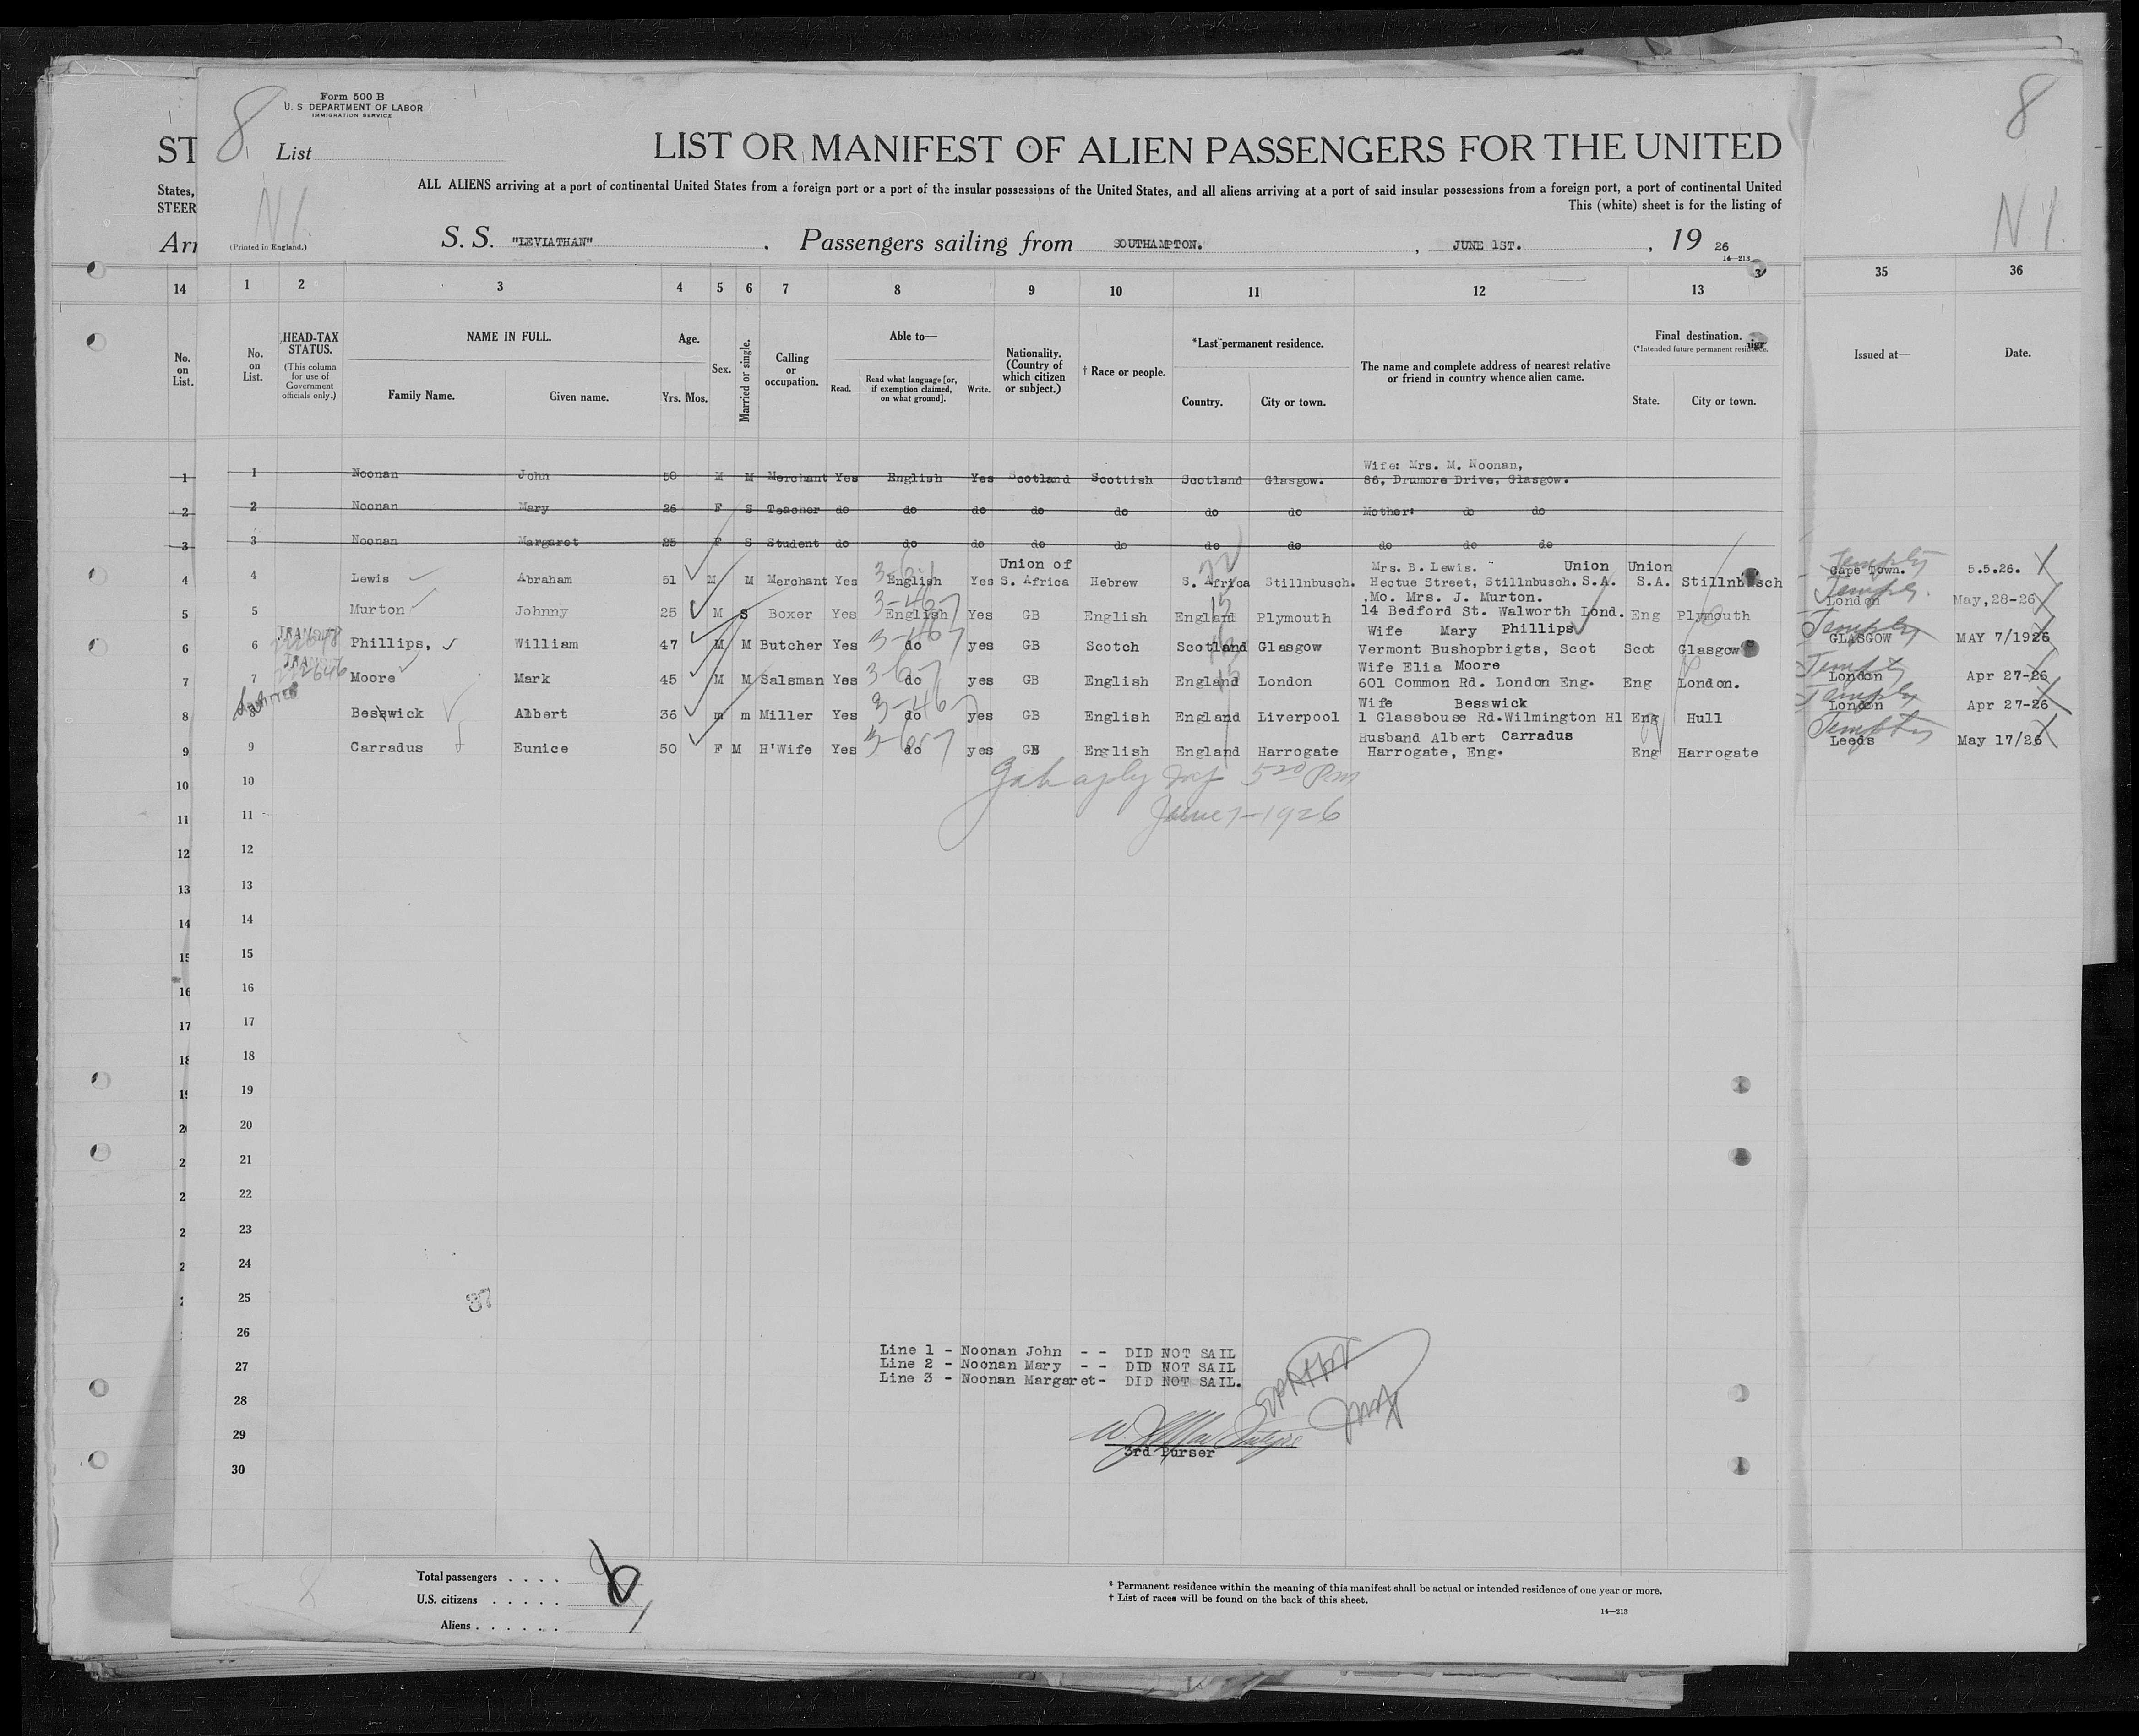 Form 500 B
U. S DEPARTMENT OF LABOR
IMMIGRATION SERVICE
8
8
ST
List
LIST OR MANIFEST OF ALIEN PASSENGERS FOR THE UNITED
States,
ALL ALIENS arriving at a port of continental United States from a foreign port or a port of the insular possessions of the United States, and all aliens arriving at a port of said insular possessions from a foreign port, a port of continental United
STEER
This (white) sheet is for the listing of
N.Y.
N.Y.
Arr
(Printed in England.)
S. S. "LEVIATHAN" . Passengers sailing from SOUTHAMPTON. , JUNE 1ST. , 19 26
14—213
14 1 2 3 4 5 6 7 8 9 10 11 12 13 35 36
No. on List.
No. on List.
HEAD-TAX STATUS.
(This column for use of Government officials only.)
NAME IN FULL.
Family Name. Given name.
Age.
Yrs. Mos.
Sex.
Married or single.
Calling or occupation.
Able to—
Read. Read what language [or, if exemption claimed, on what ground]. Write.
Nationality. (Country of which citizen or subject.)
† Race or people.
*Last permanent residence.
Country. City or town.
The name and complete address of nearest relative or friend in country whence alien came.
Final destination.
(*Intended future permanent residence.
State. City or town.
Issued at—
Date.
Wife: Mrs. M. Noonan,
1 1 Noonan John 50 M M Merchant Yes English Yes Scotland Scottish Scotland Glasgow. 86, Drumore Drive, Glasgow.
2 2 Noonan Mary 26 F S Teacher do do do do do do do Mother: do do
3 3 Noonan Margaret 25 F S Student do do do do do do do do do do
Union of Mrs. B. Lewis. Union Union
4 4 Lewis Abraham 51 M M Merchant Yes English Yes S. Africa Hebrew S. Africa Stillnbusch. Hectue Street, Stillnbusch. S.A. S.A. Stillnbusch Cape Town. 5.5.26.
Mo. Mrs. J. Murton.
5 5 Murton Johnny 25 M S Boxer Yes English Yes GB English England Plymouth 14 Bedford St. Walworth Lond. Eng Plymouth London May,28-26
TRANSIT Wife Mary Phillips
6 6 Phillips, William 47 M M Butcher Yes do yes GB Scotch Scotland Glasgow Vermont Bushopbrigts, Scot Scot Glasgow GLASGOW MAY 7/1926
Wife Elia Moore
7 7 Moore Mark 45 M M Salsman Yes do yes GB English England London 601 Common Rd. London Eng. Eng London. London Apr 27-26
Wife Besswick
8 8 Besswick Albert 36 m m Miller Yes do yes GB English England Liverpool 1 Glassbouse Rd.Wilmington Hl Eng Hull London Apr 27-26
Husband Albert Carradus
9 9 Carradus Eunice 50 F M H'Wife Yes do yes GB English England Harrogate Harrogate, Eng. Eng Harrogate Leeds May 17/26
10 10
5 20 Pm
11 11
June 7-1926
12 12
13 13
14 14
15 15
16 16
17 17
18 18
19 19
20 20
21
22
23
24
25
37
26
Line 1 - Noonan John - - DID NOT SAIL
27
Line 2 - Noonan Mary - - DID NOT SAIL
Line 3 - Noonan Margaret- DID NOT SAIL.
28
29
3rd Purser
30
Total passengers
U.S. citizens
Aliens
* Permanent residence within the meaning of this manifest shall be actual or intended residence of one year or more.
† List of races will be found on the back of this sheet.
14—213